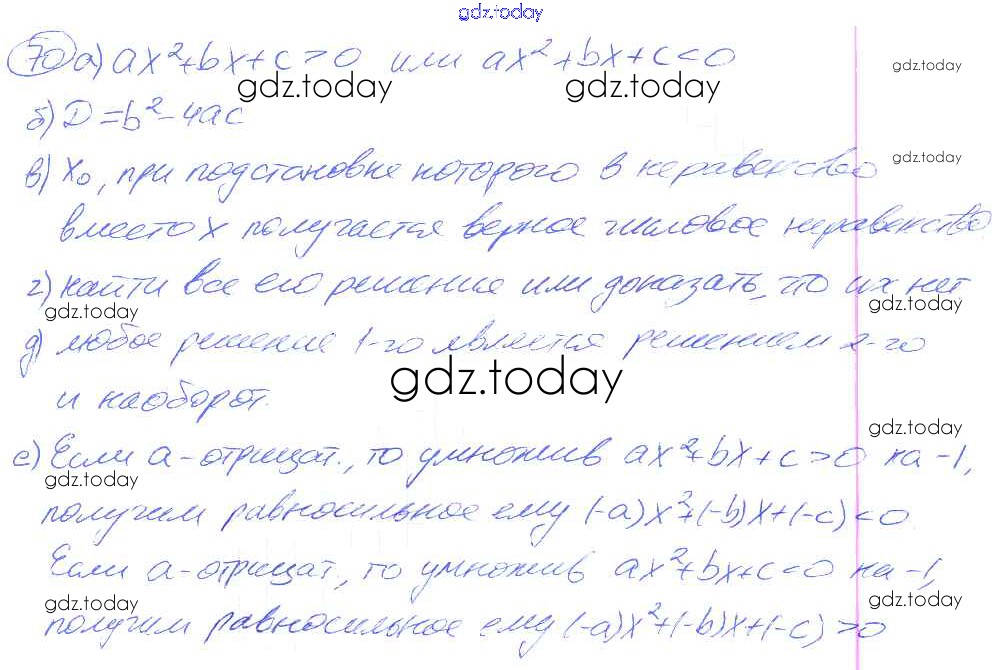 gdz.today
70 а) ax²+bx+c>0 или ax²+bx+c<0
gdz.today
gdz.today gdz.today
б) D=b²-4ac
gdz.today
в) x₀, при подстановке которого в неравенство
вместо x получается верное числовое неравенство
г) найти все его решения или доказать, что их нет.
gdz.today gdz.today
д) любое решение 1-го является решением 2-го
gdz.today
и наоборот.
gdz.today
е) Если a-отрицат., то умножив ax²+bx+c>0 на -1,
gdz.today
получим равносильное ему (-a)x²+(-b)x+(-c)<0
Если a-отрицат., то умножив ax²+bx+c<0 на -1,
gdz.today gdz.today
получим равносильное ему (-a)x²+(-b)x+(-c)>0